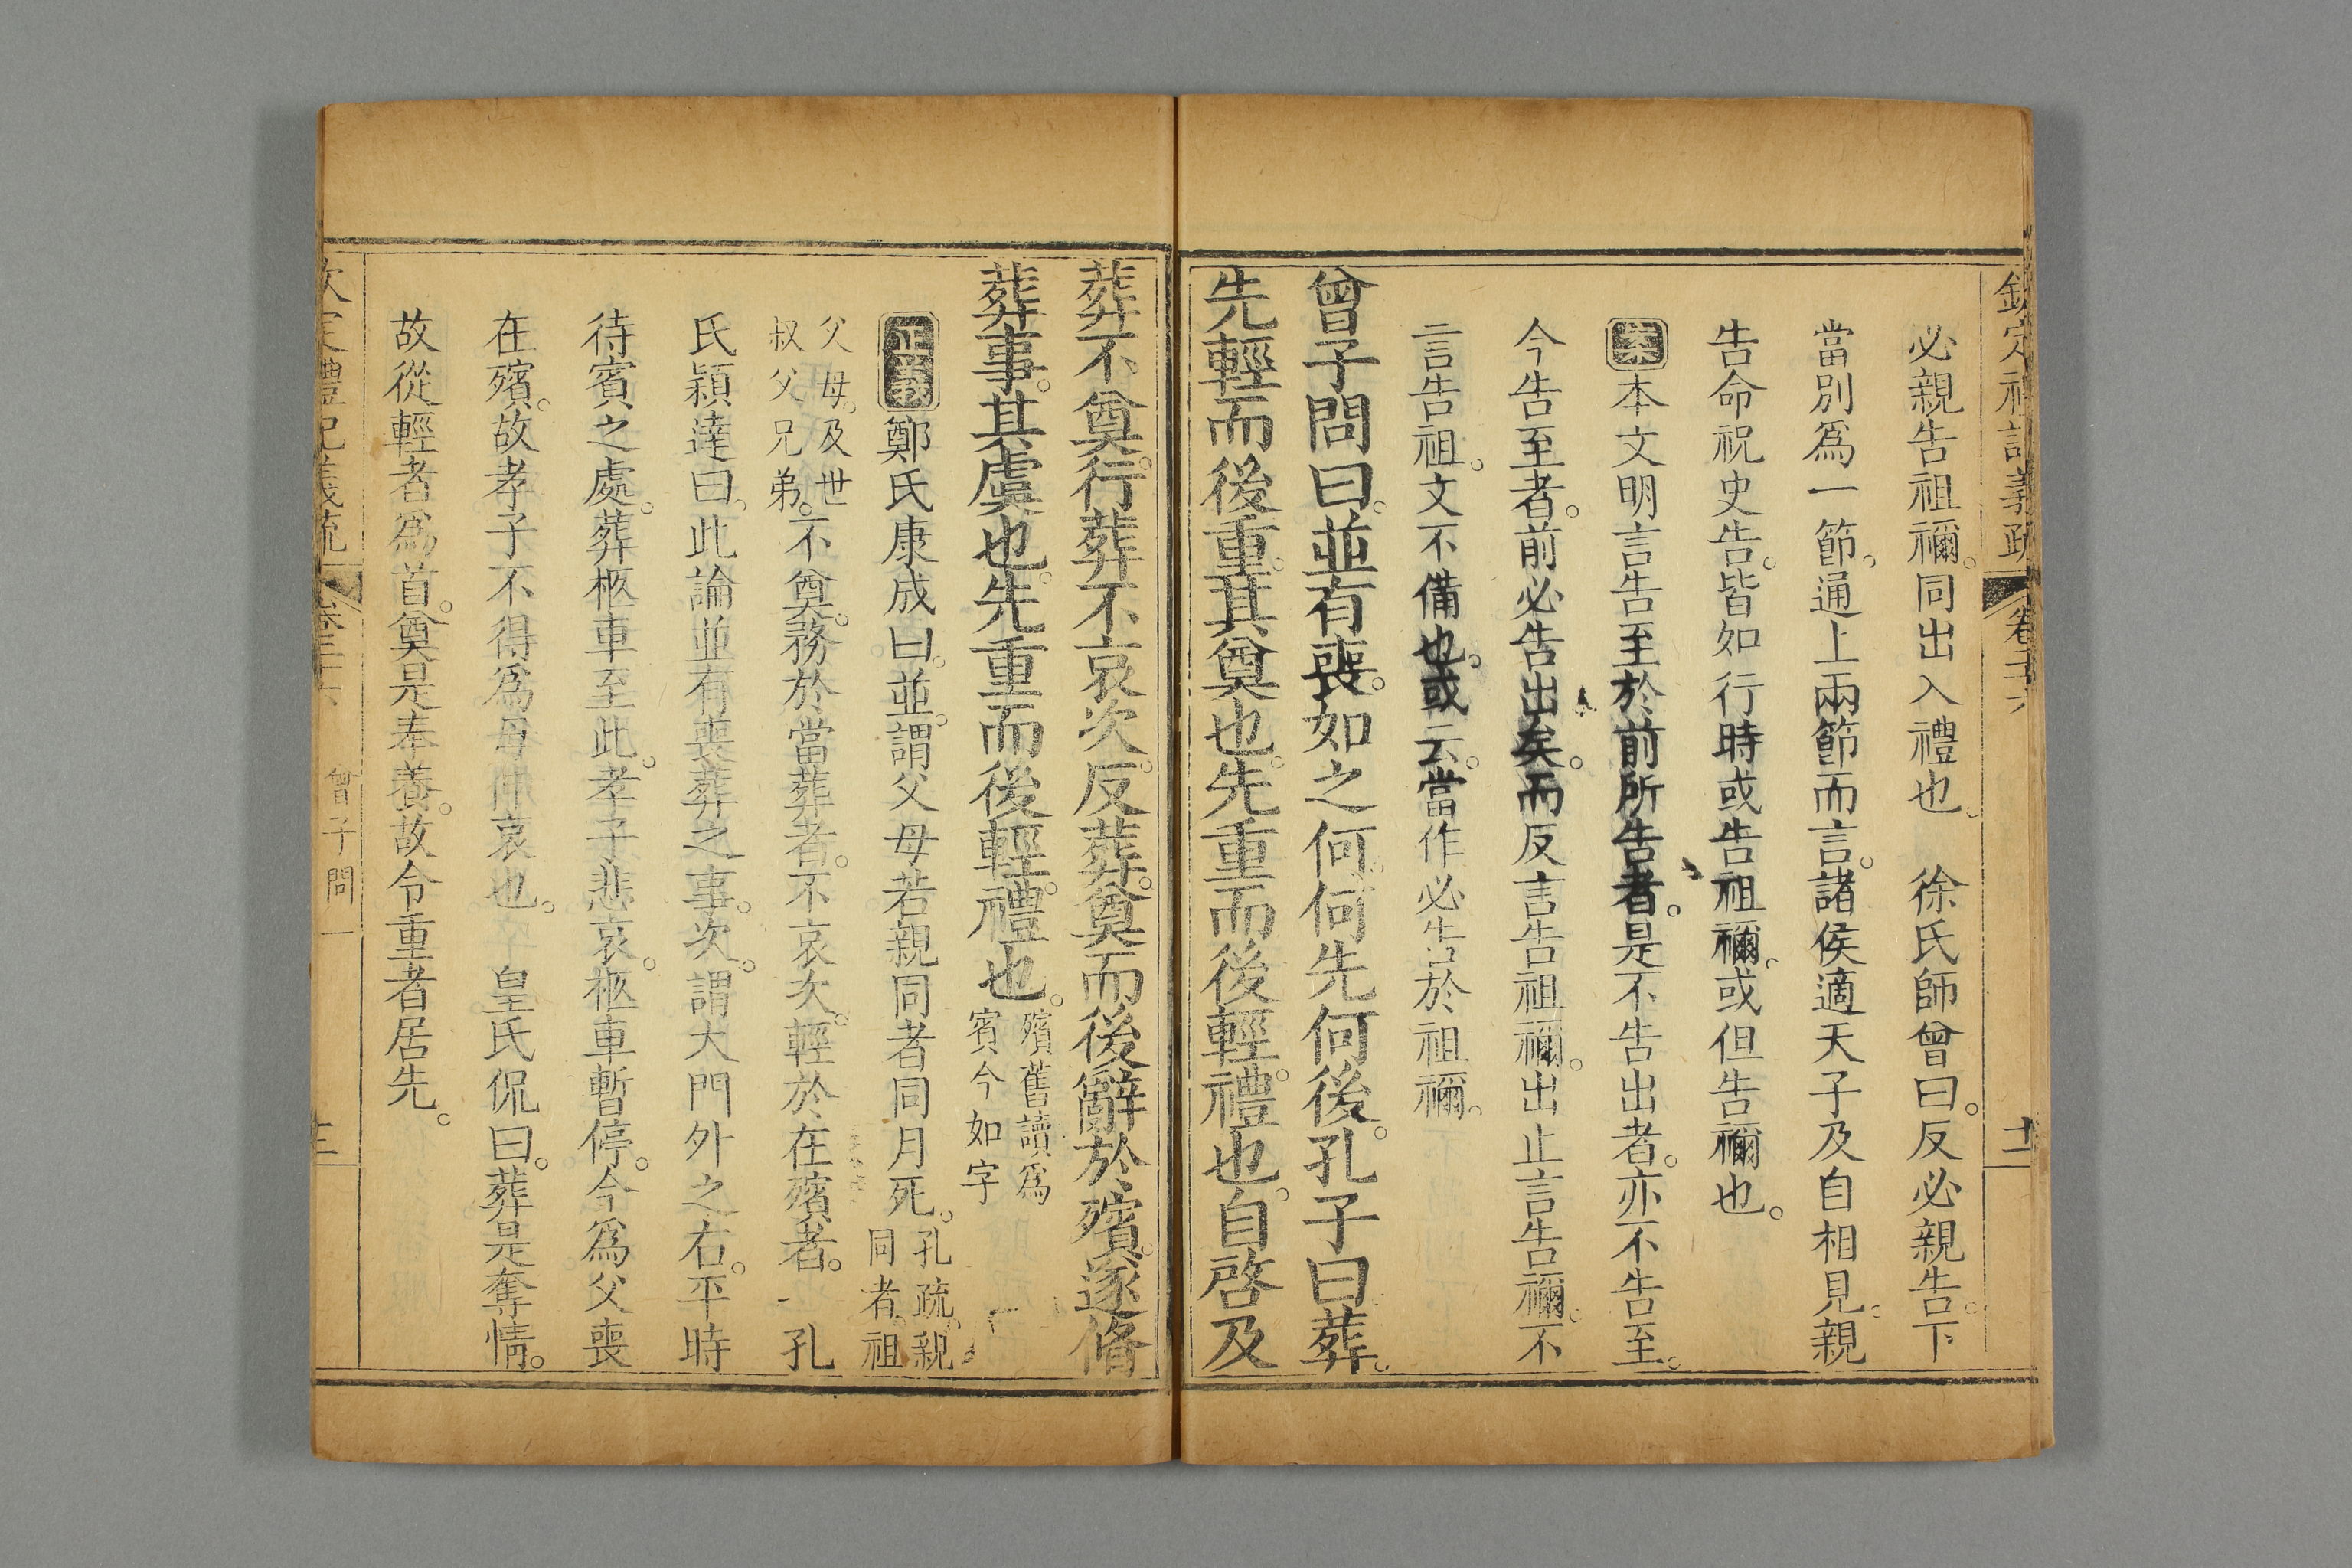 欽定禮記義疏 卷二十六 十二
必親告祖禰。同出入禮也。 徐氏師曾曰。反必親告。下
當別爲一節。通上兩節而言。諸侯適天子及自相見。親
告命祝史告。皆如行時或告祖禰。或但告禰也。
案本文明言告至於前所告者。是不告出者。亦不告至。
今告至者。前必告出矣。而反言告祖禰。出止言告禰。不
言告祖。文不備也。或云。當作必告於祖禰。
曾子問曰。並有喪。如之何何先何後。孔子曰葬。
先輕而後重。其奠也。先重而後輕。禮也。自啓及
葬不奠。行葬不哀次。反葬。奠而後辭於殯。遂脩
葬事。其虞也。先重而後輕。禮也。殯舊讀爲
賓今如字
正義鄭氏康成曰。並。謂父母若親同者同月死。孔疏。親
同者。祖
父母。及世
叔父兄弟。不奠。務於當葬者。不哀次。輕於在殯者。 孔
氏穎達曰。此論並有喪葬之事。次。謂大門外之右。平時
待賓之處。葬柩車至此。孝子悲哀。柩車暫停。今爲父喪
在殯。故孝子不得爲母伸哀也。 皇氏侃曰。葬是奪情。
故從輕者爲首。奠是奉養。故令重者居先。
欽定禮記義疏 卷二十六 曾子問一